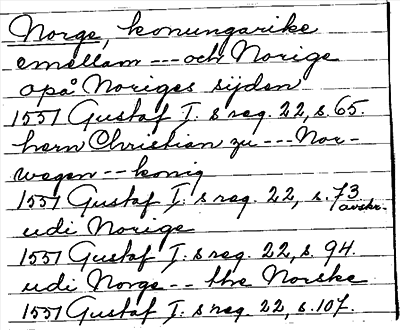 Norge, konungarike
emellam --- och Norige
opå Noriges sijden
1551 Gustaf I:s reg. 22, s. 65.
hern Christian zu --- Nor-
wegen -- konig
1551 Gustaf I:s reg. 22, s. 73
avskr.
udi Norige
1551 Gustaf I:s reg. 22, s. 94.
udi Norge -- the Norske
1551 Gustaf I:s reg. 22, s. 107.